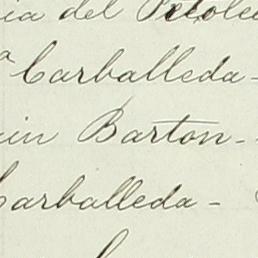 ia del Petóleo
a Carballeda -
in Barton - -
Carballeda -